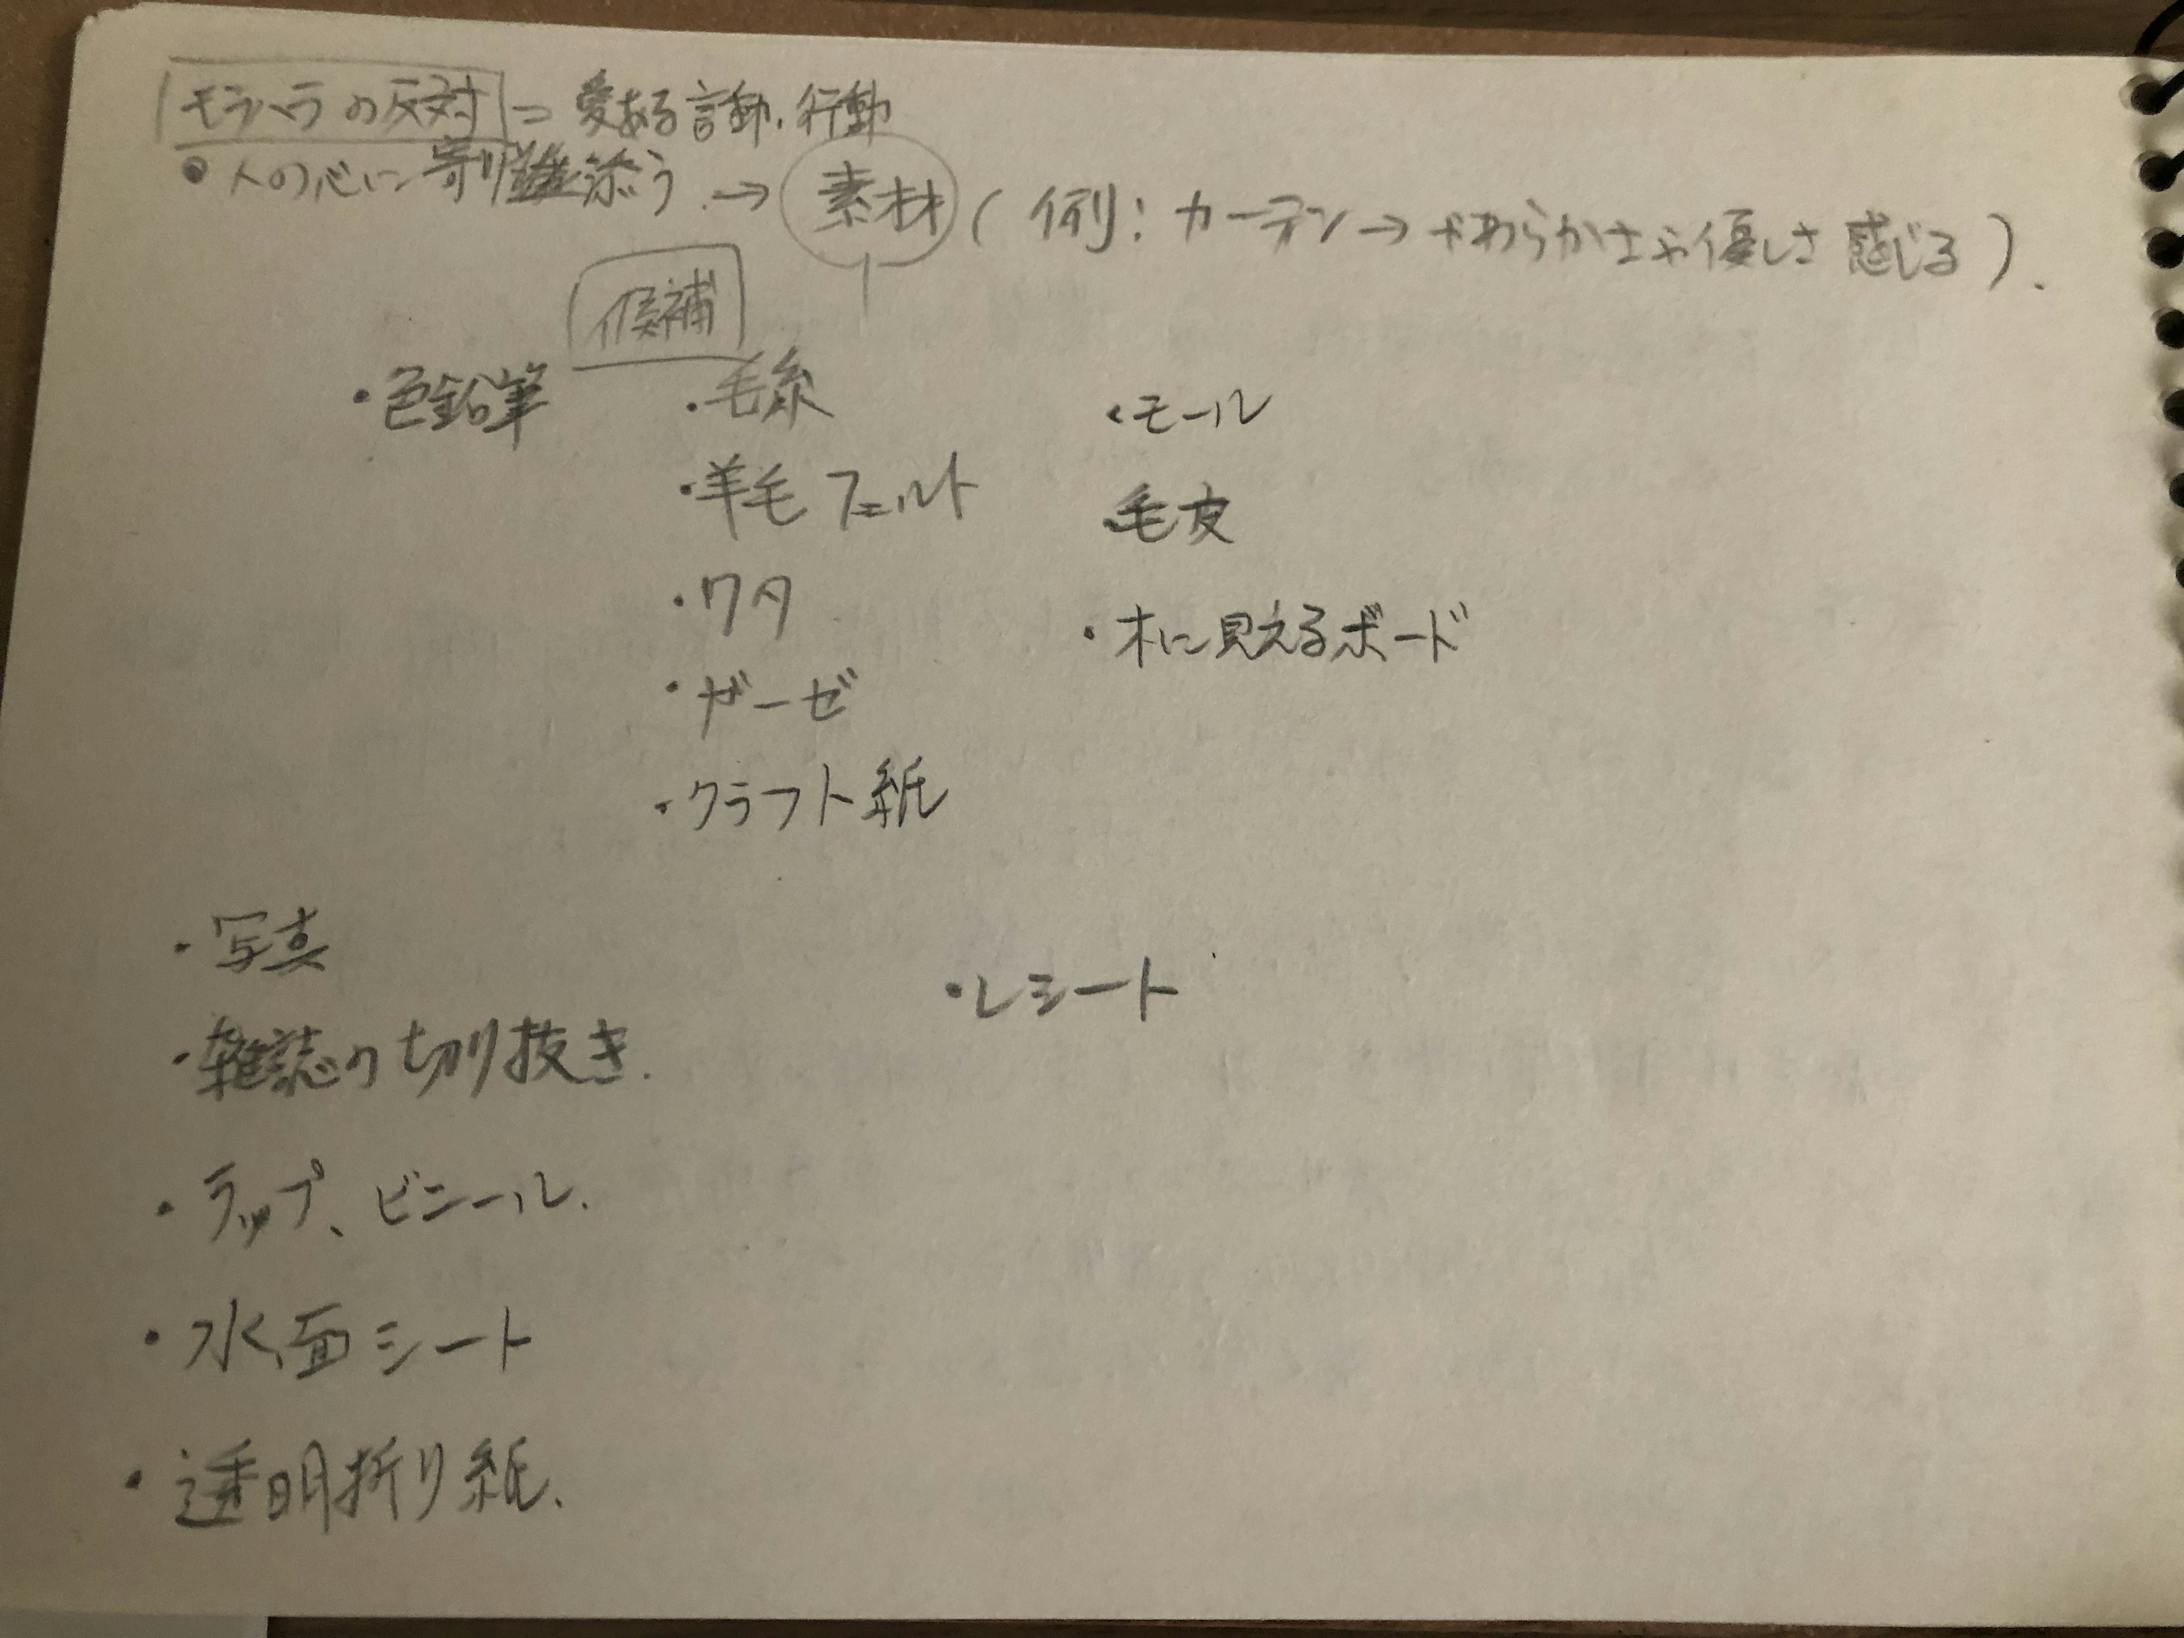 モラハラの反対 = 愛ある言動、行動
・人の心に寄り添う → 素材 (例: カーテン→やわらかさや優しさ感じる).
候補
・色鉛筆 ・毛糸 ・モール
・羊毛フェルト ・毛皮
・ワタ ・木に見えるボード
・ガーゼ
・クラフト紙
・写真 ・レシート
・雑誌の切り抜き.
・ラップ、ビニール.
・水面シート
・透明折り紙.